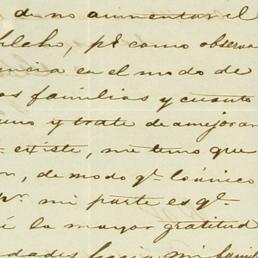 de no aumentar el
hlcho, pº como observa
encia en el modo de
as familias y cuanto
uno y trate de amejorar
existe, me temo que
n, de modo qº lo único
mi parte es qº
é la mayor gratitud
dades hacia mi famil